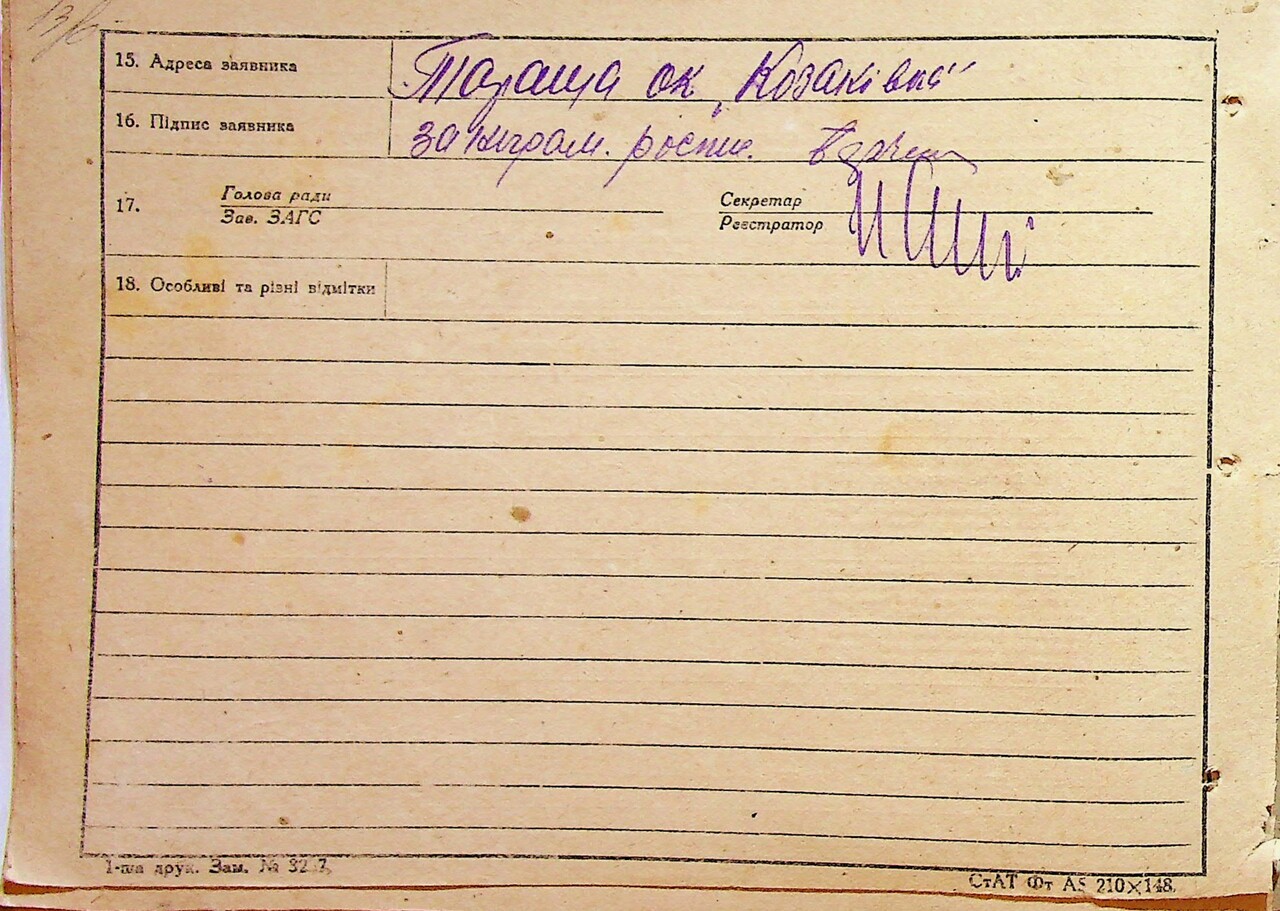 15. Адреса заявника Тараща ок „Козаківка"
16. Підпис заявника за неграм. розпис.
17. Голова ради
Зав. ЗАГС
Секретар
Реєстратор
18. Особливі та різні відмітки
1-ша друк. Зам. №
СтАТ Фт А5 210×148.